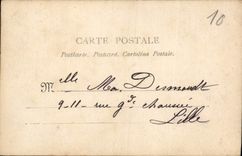 10
CARTE POSTALE
Postkarte. Postcard. Cartolina Postale.
Melle Mea. Desmedt
9-11 - rue gde chaussée
Lille